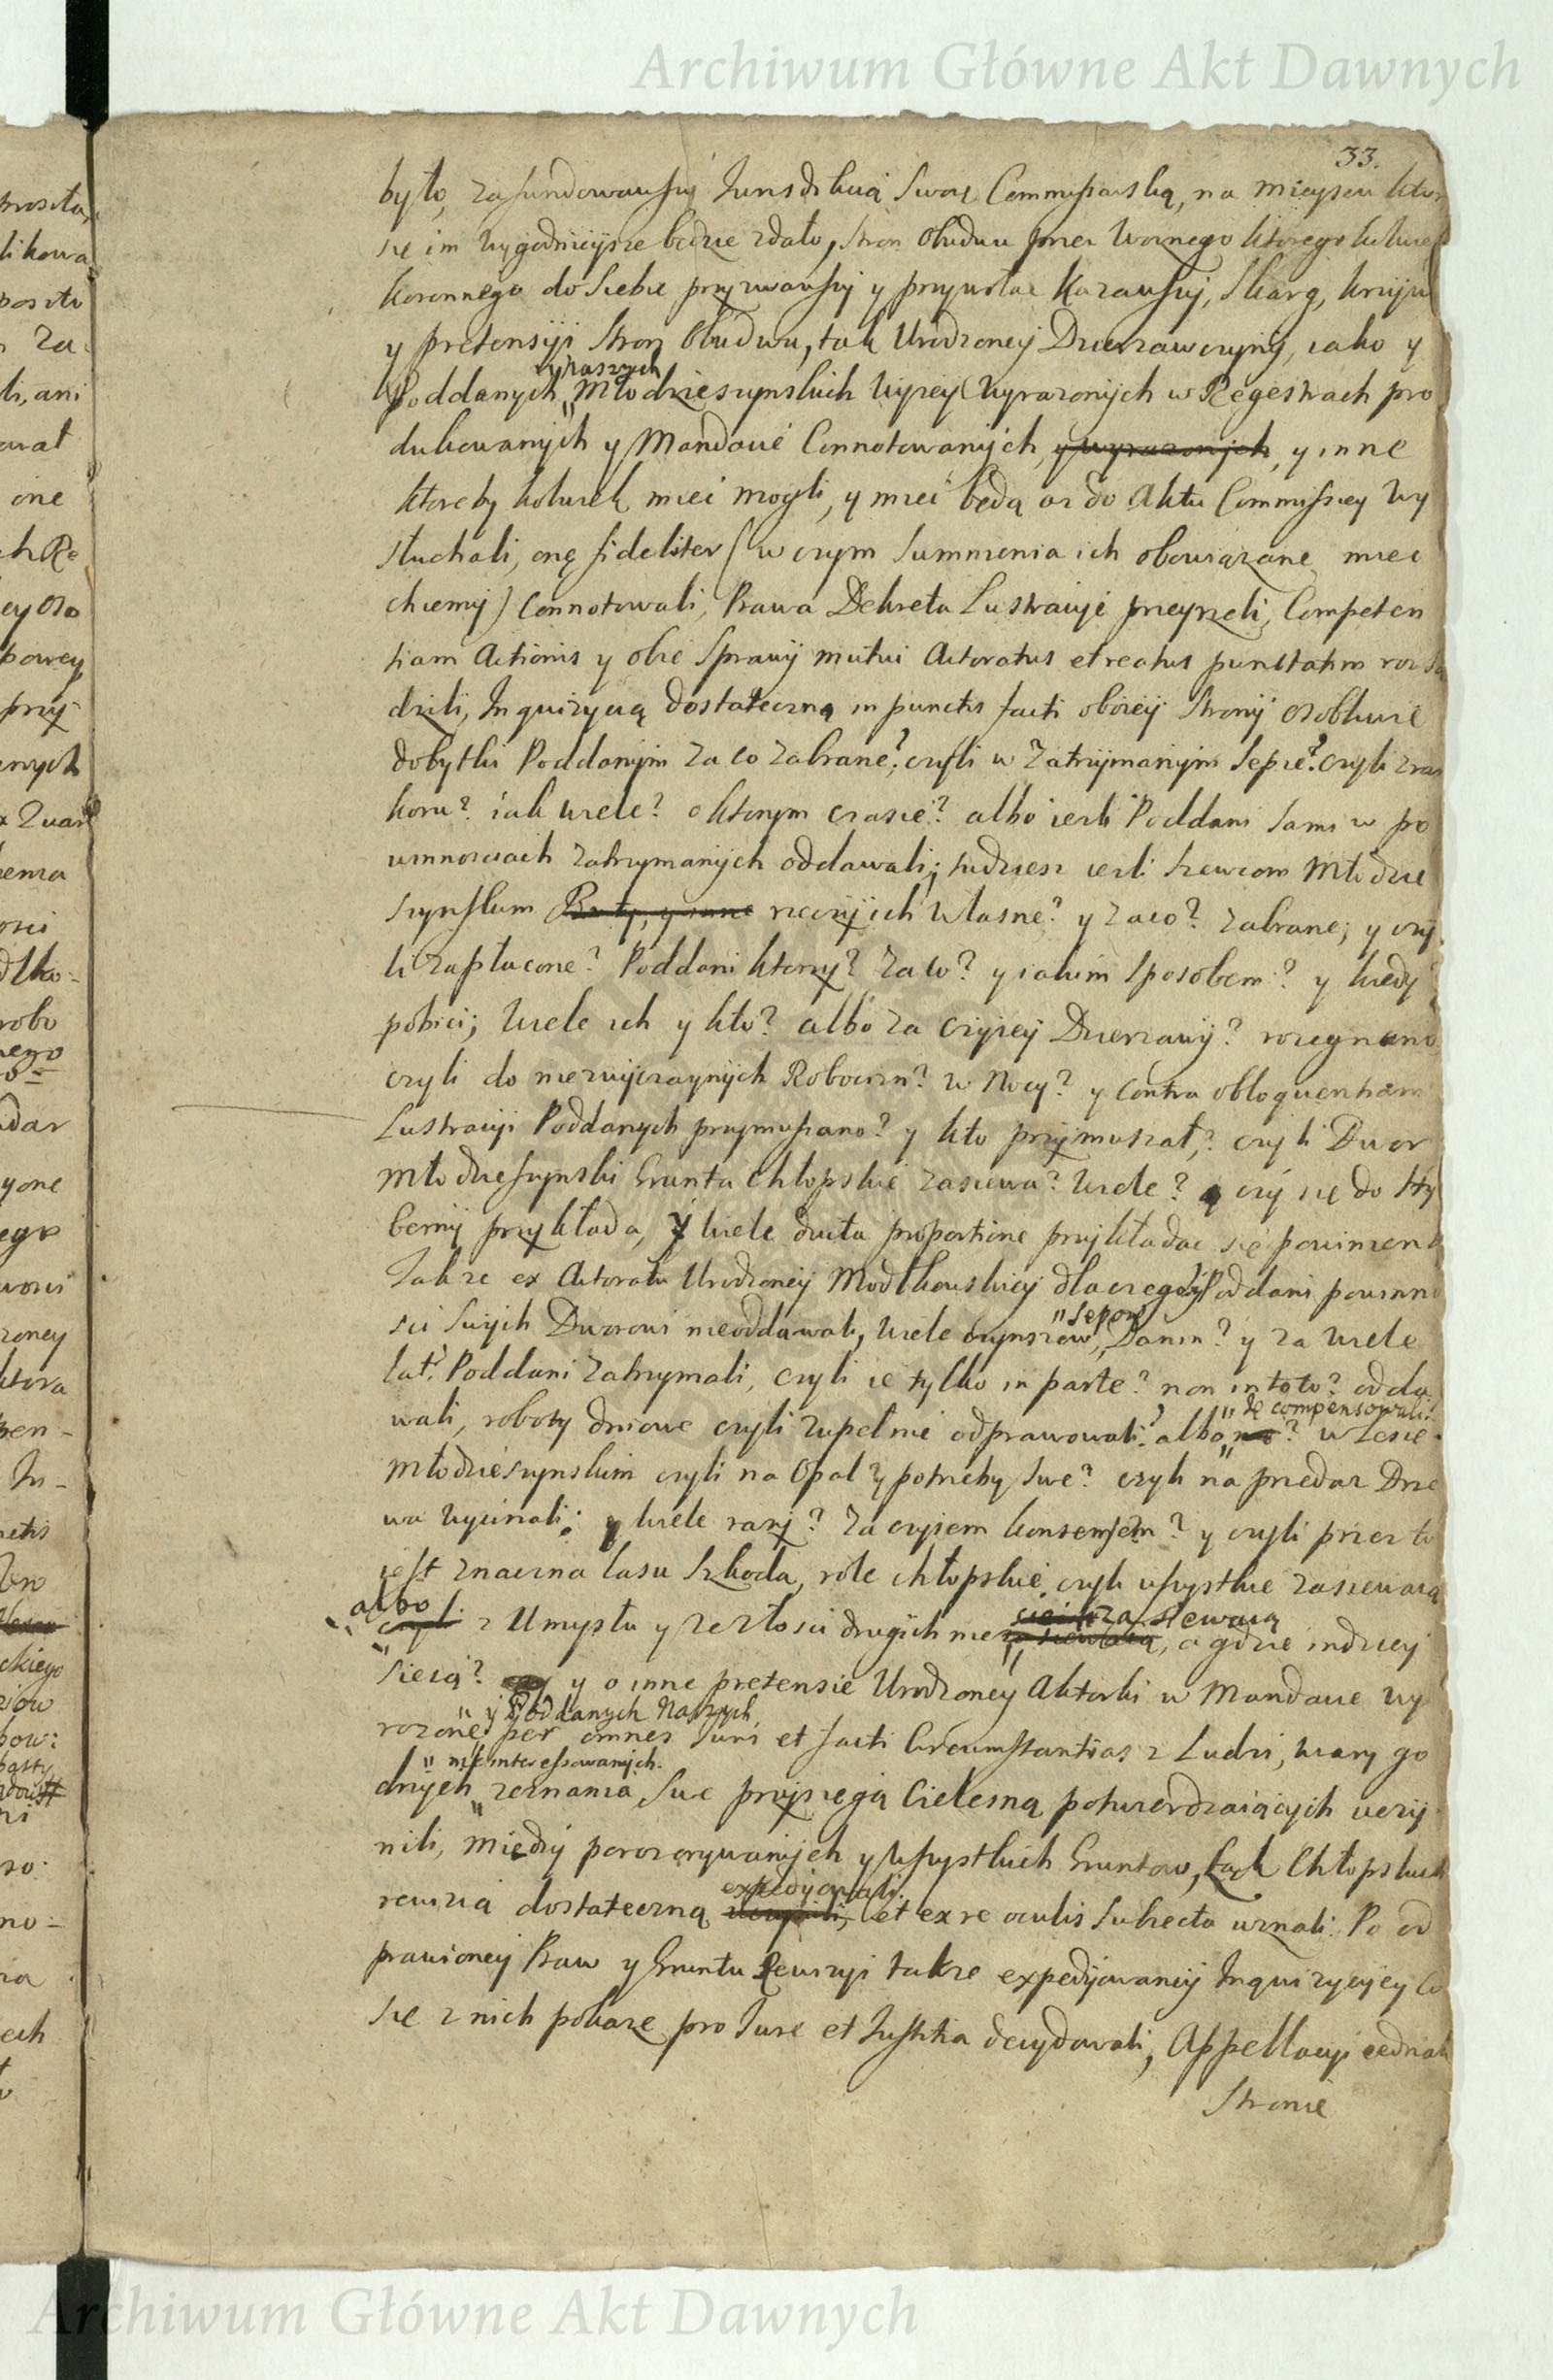 Archiwum Główne Akt Dawnych
33.
było, zafundowawszy Jurisdikcią Swoię Commissarską, na mieyscu ktor
się im wygodnieysze będzie zdało, stron obudwu przez Woznego ktoregokolwiek
koronnego do Siebie przyzwawszy y przywołac kazawszy, Skarg, krzywd
y pretensyi Stron Obudwu, tak Urodzoney Dzierzawczyny, iako y
y naszych
Poddanych Młodzieszynskich wyżey wyrazonych w Regestrach pro
dukowanych y Mandacie Connotowanych, y wyrazonych, y inne
ktoreby kolwiek miec mogli, y miec będą az do Aktu Commissiey wy
słuchali, onę fideliter (w czym Summienia ich obowiązane miec
chcemy) Connotowali, Prawa Dekreta Lustracyie przeyrzeli, Competen
tiam Actionis y obie Sprawy mutui Actoratus et reatus punctatim rozsą
dzili, Inquizycią dostateczną in punctis facti oboiey Strony osobliwie
dobytki Poddanym za co zabrane? czyli w zatrzymanym Sepie? czyli z ra
koru? iak wiele? o ktorym czasie? albo iesli Poddani sami w po
winnosciach zatrzymanych oddawali; tudziesz iesli Szewcom Młodzie
szynskim Buty, y inne rzeczy ich własne? y za co? zabrane; y czy
li zapłacone? Poddani ktorzy? za co? y iakim sposobem? y kiedy?
pobici; wiele ich y kto? albo za czyiey Dzierzawy? rozegnano
czyli do niezwyczaynych Robocizn? w Nocy? y contra obloquentiam
Lustracyi Poddanych przymuszano? y kto przymuszał? czyli Dwor
Młodzieszynski Grunta Chłopskie zasiewa? wiele? czy się do Hy
berny przykłada, y wiele ducta proportione przykładac się powinien
Także ex Actoratu Urodzoney Modlkowskiey dlaczegoby Poddani powinno
sci Swych Dworowi nieoddawali, wiele czynszow,
" Sepow
Danin? y za wiele
lat? Poddani zatrzymali, czyli ie tylko in parte? non in toto? odda
wali, roboty dniowe czyli zupełnie odprawowali? albo
" ie compensowali?
w Lesie
Młodzieszynskim czyli na Opał y potrzeby Swe? czyli na przedaz Drze
wa wycinali; y wiele razy? za czyiem konsensem? y czyli przez to
iest znaczna lasu szkoda, role chłopskie czyli wszystkie zasiewaią
albo
czyli z Umysłu y ze złosci drugich nie
zasiewaią
zasiewaią, a gdzie indziey
Sieią? y o inne pretensie Urodzoney Aktorki w Mandacie wy
" y Poddanych Naszych
rozone per omnes Juris et facti Circumstantias z Ludzi, wiary go
" nieinteressowanych.
dnych zeznania Swe przysięgą Cielesną potwierdzaiących uczy
nili, między porozorywanych y wszystkich Gruntow, Łąk Chłopskich
rewizią dostateczną
expedyowali.
uczynili, et ex re oculis Subiecta uznali. Po od
prawioney Praw y Gruntu Rewizyi także expedyowaney Inquizycyey co
się z nich pokaze pro Jure et Justitia decydowali, Appellacyi iednak
Stronie
Archiwum Główne Akt Dawnych